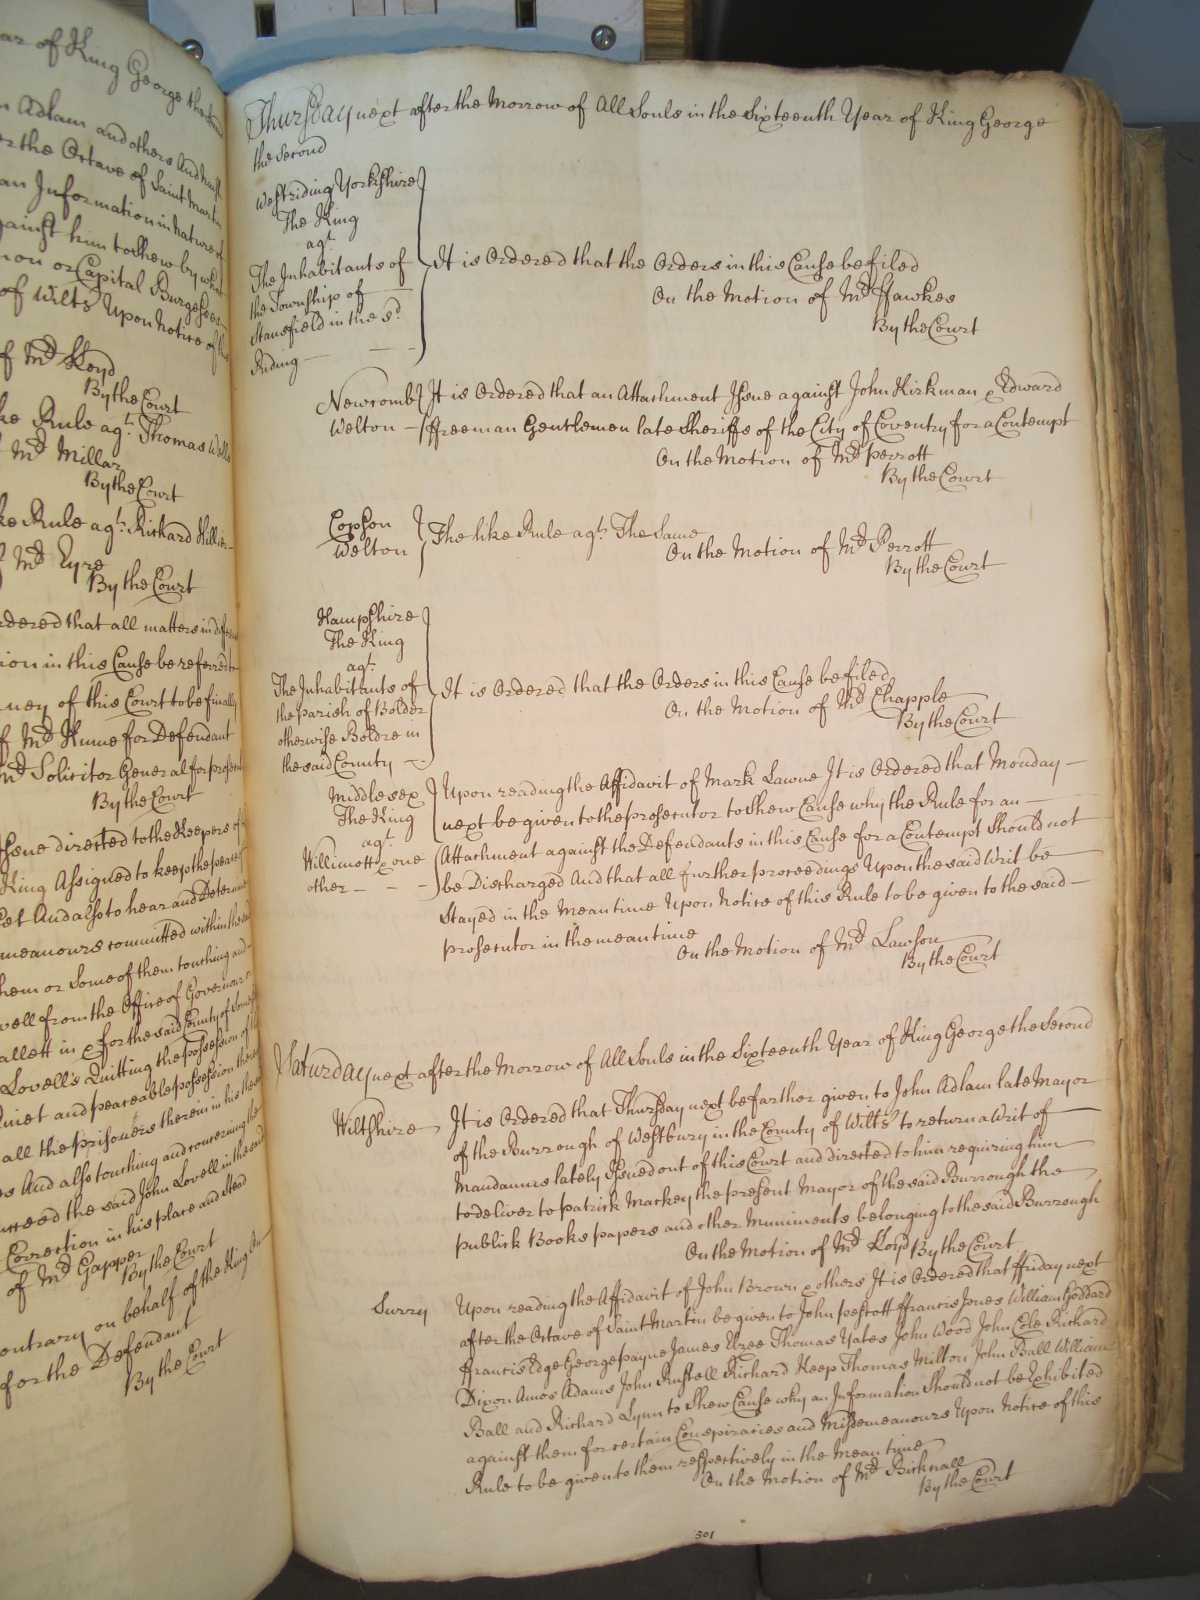 ar of King George the
n Adlam and others And
er the Octave of Saint Martin
an Information in Nature of
gainst him to Shew by what
ion or Capital Burgesses
of Wilts Upon Notice of
of Mr. Lloyd
By the Court
ke Rule agt. Thomas Wells
Mr. Millar
By the Court
ke Rule agt. Richard Hillier
Mr. Eyre
By the Court
rdered that all matters in
ion in this Cause be referred to
ney of this Court to be finally
f Mr. Hume for Defendant
Mr. Solicitor General for
By the Court
Issue directed to the Keepers of
King Assigned to keep the peace
And also to hear and Determine
meanours committed within the
hem or Some of them touching and
vell from the Office of Governour
allett in & for the said County of
Lovell's Quitting the possession of
uiet and peaceable possession
all the prisoners therein in his
And also touching and concerning the
cceed the said John Lovell in the said
Correction in his place and Stead
of Mr. Gapper
By the Court
ontrary on behalf of the King
for the Defendant
By the Court
Thursday next after the Morrow of All Souls in the Sixteenth Year of King George
the Second
Westriding Yorkshire
The King
agt.
The Inhabitants of
the Township of
Stansfield in the sd.
Riding
It is Ordered that the Orders in this Cause be filed
On the Motion of Mr. Hawkes
By the Court
Newcomb
Welton
It is Ordered that an Attachment Issue against John Kirkman & Edward
ffreeman Gentlemen late Sheriffs of the City of Coventry for a Contempt
On the Motion of Mr. Perrott
By the Court
Copson
Welton
The like Rule agt. The Same
On the Motion of Mr. Perrott
By the Court
Hampshire
The King
agt.
The Inhabitants of
the parish of Bolder
otherwise Boldre in
the said County
It is Ordered that the Orders in this Cause be filed
On the Motion of Mr. Chapple
By the Court
Middlesex
The King
agt.
Willimott & one
other
Upon reading the Affidavit of Mark Lawne It is Ordered that Monday
next be given to the prosecutor to Shew Cause why the Rule for an
Attachment against the Defendants in this Cause for a Contempt Should not
be Discharged And that all further proceedings Upon the said Writ be
Stayed in the Mean time Upon Notice of this Rule to be given to the said
prosecutor in the mean time
On the Motion of Mr. Lawson
By the Court
Saturday next after the Morrow of All Souls in the Sixteenth Year of King George the Second
Wiltshire
It is Ordered that Thursday next be farther given to John Adlam late Mayor
of the Burrough of Westbury in the County of Wilts to return a Writ of
Mandamus lately Issued out of this Court and directed to him requiring him
to deliver to Patrick Markey the present Mayor of the said Burrough the
publick Books papers and other Muniments belonging to the said Burrough
On the Motion of Mr. Lloyd By the Court
Surry
Upon reading the Affidavit of John Brown & others It is Ordered that ffriday next
after the Octave of Saint Martin be given to John Pescott ffrancis Jones William Goddard
ffrancis Edge George Payne James Uzee Thomas Yates John Wood John Cole Richard
Dixon Amos Adams John Russell Richard Keep Thomas Milton John Ball William
Ball and Richard Lynn to Shew Cause why an Information Should not be Exhibited
against them for certain Conspiracies and Misdemeanours Upon Notice of this
Rule to be given to them respectively in the Mean time
On the Motion of Mr. Bicknall
By the Court
301